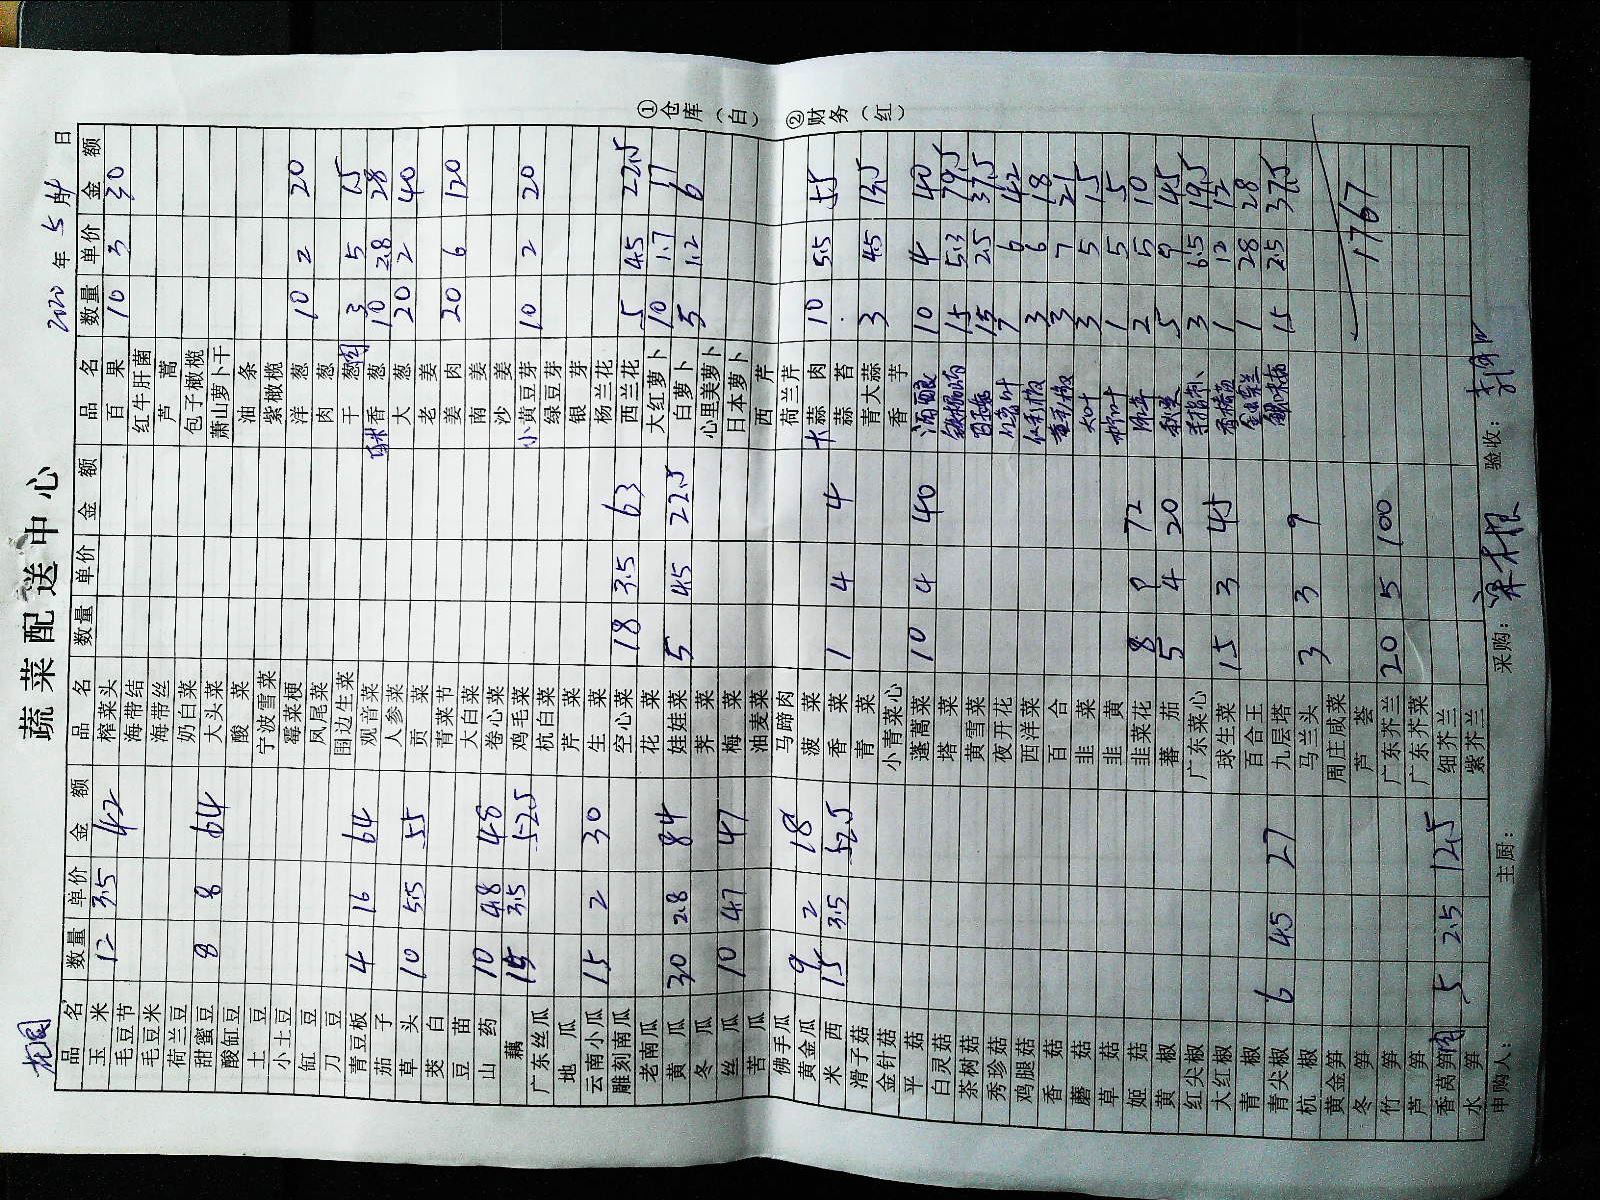 蔬菜配送中心
花园 2020 年 5 月 4 日
品名 数量 单价 金额 品名 数量 单价 金额 品名 数量 单价 金额
玉米 12 3.5 42 榨菜头 百果 10 3 30
毛豆节 海带结 红牛肝菌
毛豆米 海带丝 芦蒿
荷兰豆 奶白菜 包子橄榄
甜蜜豆 8 8 64 大头菜 萧山萝卜干
酸缸豆 酸菜 油条
土豆 宁波雪菜 紫橄榄
小土豆 霉菜梗 洋葱 10 2 20
缸豆 凤尾菜 肉葱
刀豆 围边生菜 干葱肉 3 5 15
青豆板 4 16 64 观音菜 香葱 10 2.8 28
茄子 人参菜 大葱 20 2 40
草头 10 5.5 55 贡菜 老姜
茭白 青菜节 姜肉 20 6 120
豆苗 大白菜 南姜
山药 10 4.8 48 卷心菜 沙姜
藕 15 3.5 52.5 鸡毛菜 小黄豆芽 10 2 20
广东丝瓜 杭白菜 绿豆芽
地瓜 芹菜 银芽
云南小瓜 15 2 30 生菜 杨兰花
雕刻南瓜 空心菜 18 3.5 63 西兰花 5 4.5 22.5
老南瓜 花菜 大红萝卜 10 1.7 17
黄瓜 30 2.8 84 娃娃菜 5 4.5 22.5 白萝卜 5 1.2 6
冬瓜 荠菜 心里美萝卜
丝瓜 10 4.7 47 梅菜 日本萝卜
苦瓜 油麦菜 西芹
佛手瓜 马蹄肉 荷兰芹
黄金瓜 9 2 18 菠菜 大蒜肉 10 5.5 55
米西 15 3.5 52.5 香菜 1 4 4 蒜苔
滑子菇 青菜 青大蒜 3 4.5 13.5
金针菇 小青菜心 香芋
平菇 蓬蒿菜 10 4 40 酒酿 10 4 40
白灵菇 塔菜 15 5.3 79.5
茶树菇 黄雪菜 15 2.5 37.5
秀珍菇 夜开花 7 6 42
鸡腿菇 西洋菜 红彩椒 3 6 18
香菇 百合 黄彩椒 3 7 21
蘑菇 韭菜 3 5 15
草菇 韭黄 1 5 5
姬菇 韭菜花 8 9 72 2 5 10
黄椒 蕃茄 5 4 20 5 9 45
红尖椒 广东菜心 3 6.5 19.5
大红椒 球生菜 15 3 45 1 12 12
青椒 百合王 1 28 28
青尖椒 6 4.5 27 九层塔 15 2.5 37.5
杭椒 马兰头 3 3 9
黄金笋 周庄咸菜
冬笋 芦荟 1767
竹笋 广东芥兰 20 5 100
芦笋 广东芥菜
香莴笋肉 5 2.5 12.5 细芥兰
水笋 紫芥兰
申购人: 主厨: 采购: 验收:
①仓库(白) ②财务(红)